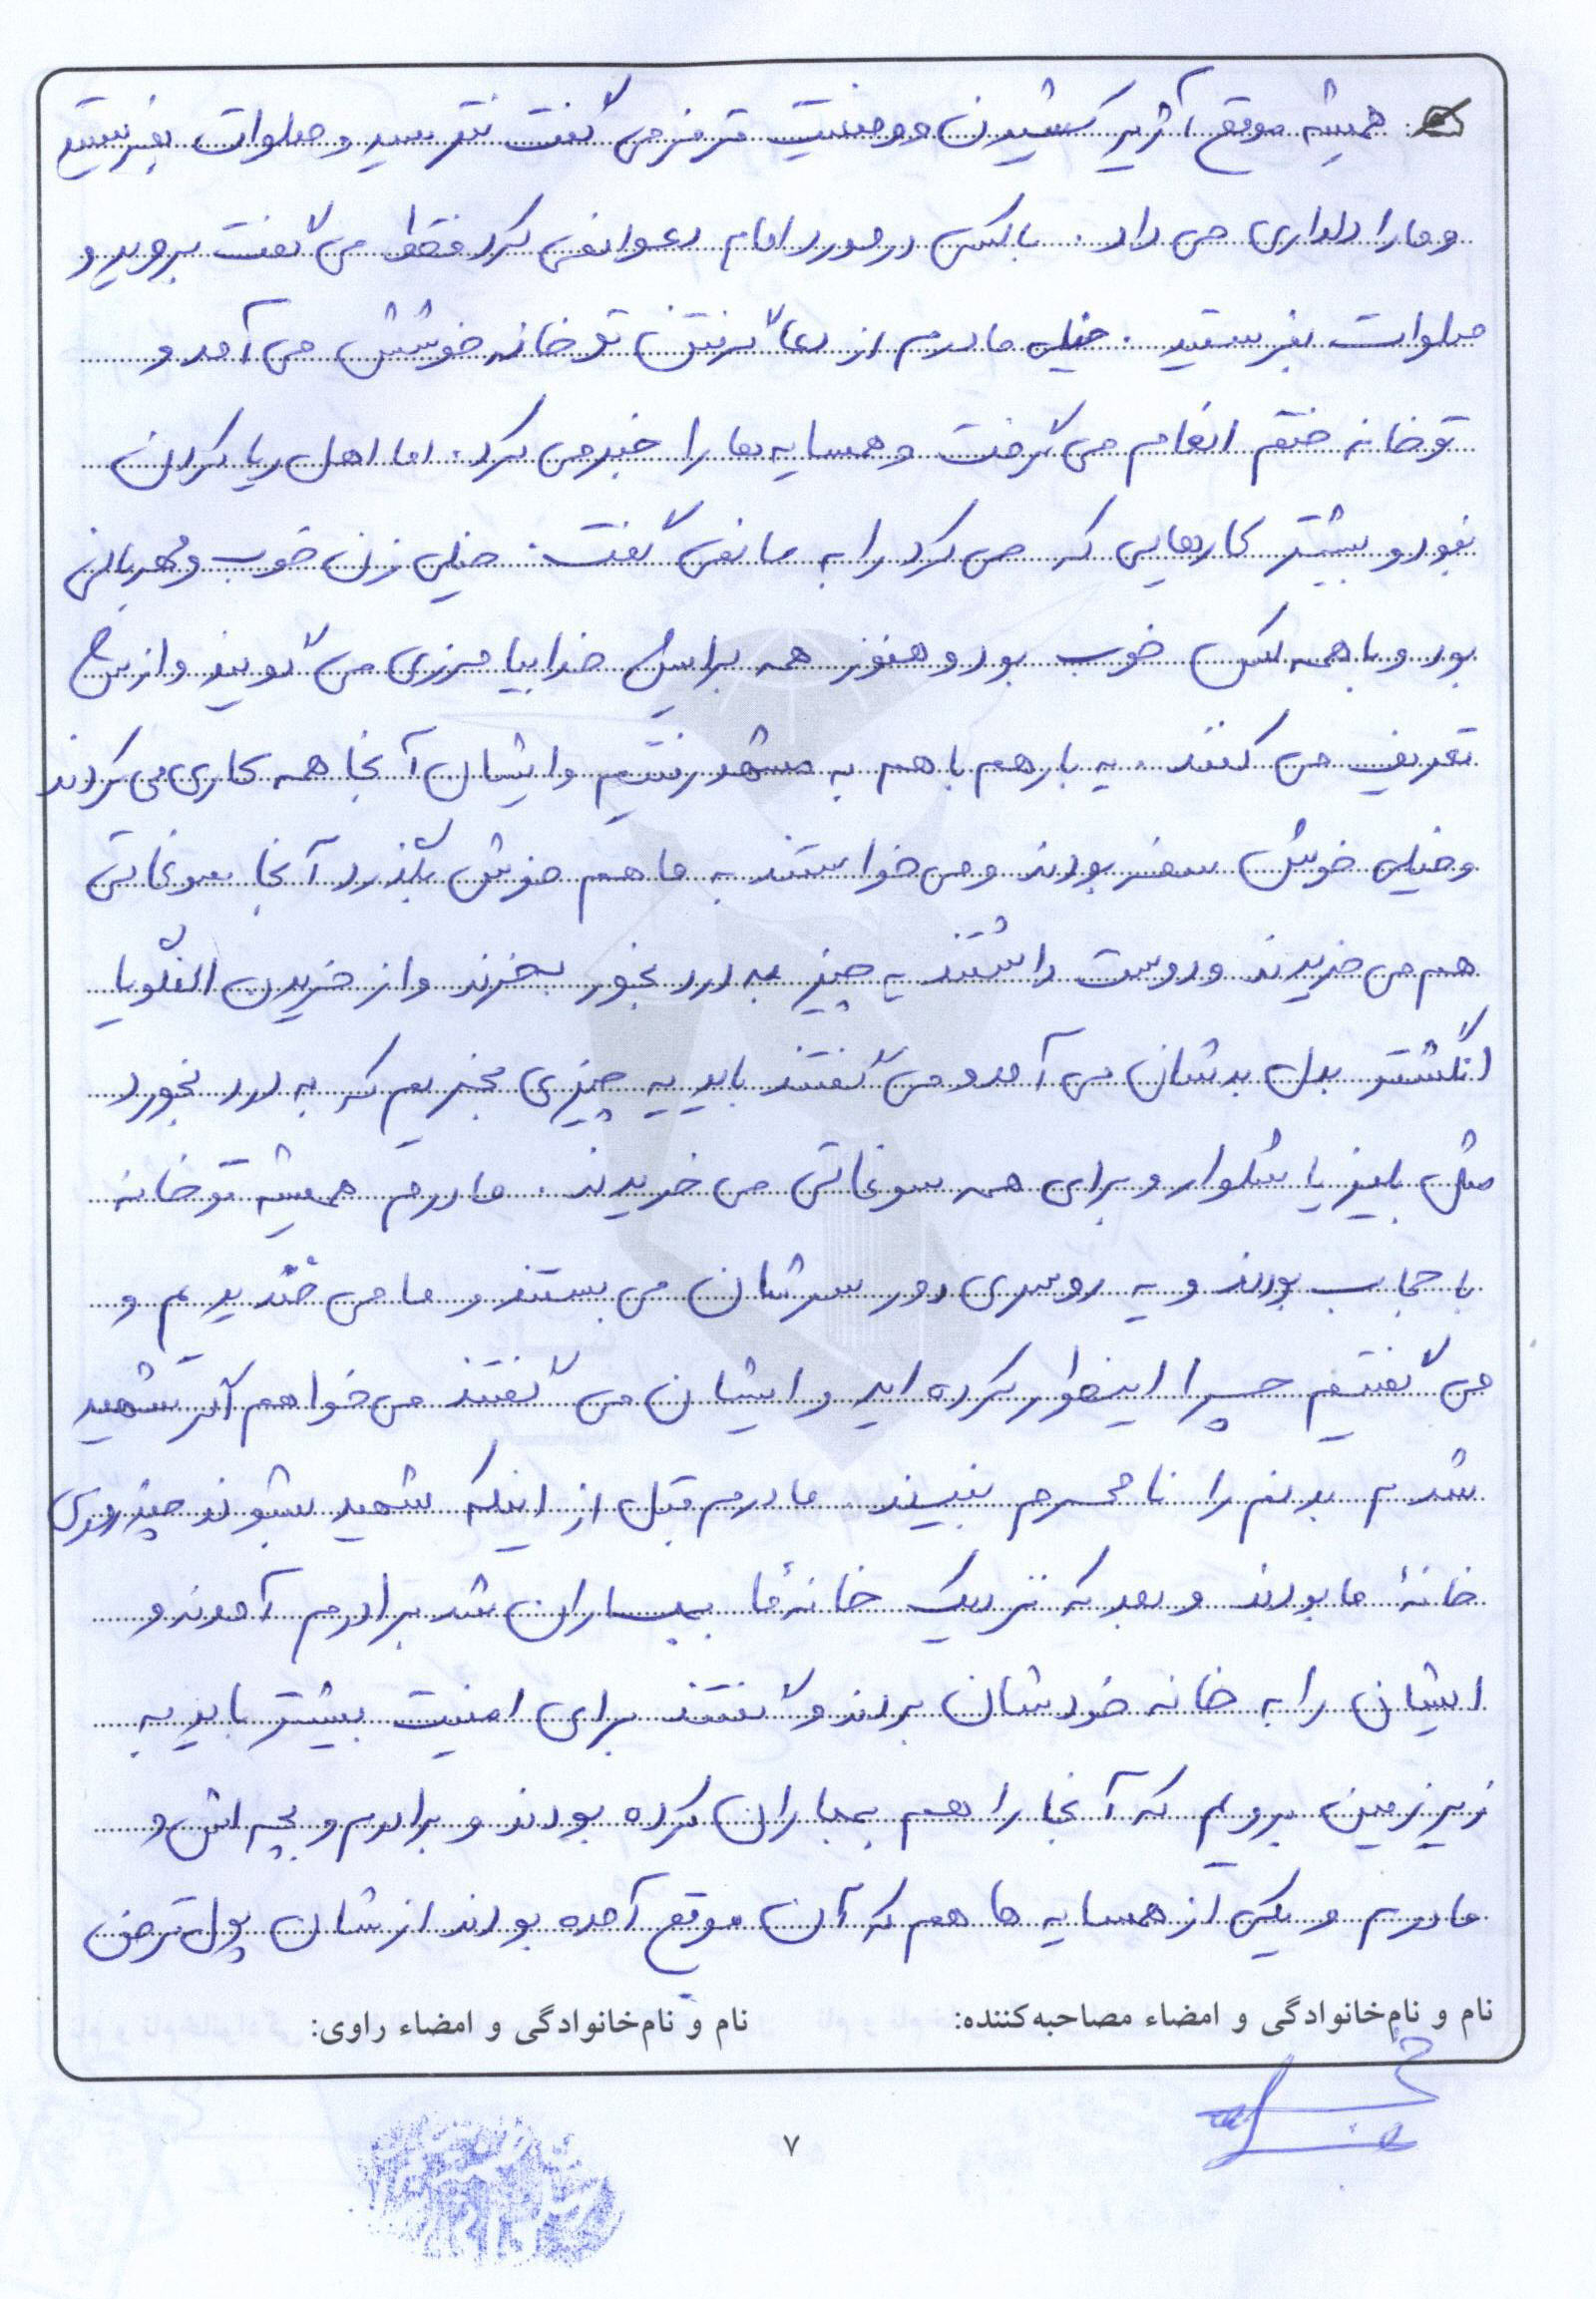 همیشه موقع آژیر کشیدن و وضعیت قرمز می گفت نترسید و صلوات بفرستید
و ما را دلداری می داد. با کسی در مورد امام دعوا نمی کرد فقط می گفت بروید و
صلوات بفرستید. خیلی مادرم از دعا گرفتن تو خانه خوشش می آمد و
تو خانه ختم انعام می گرفت و همسایه ها را خبر می کرد. اما اهل ریا کردن
نبود و بیشتر کارهایی که می کرد را به ما نمی گفت. خیلی زن خوب و مهربانی
بود و با همه کس خوب بود و هنوز همه برایش خدا بیامرزی می گویند و ازش
تعریف می کنند. یه بار هم با هم به مشهد رفتیم و ایشان آنجا همه کاری می کردند
و خیلی خوش سفر بودند و می خواستند به ما هم خوش بگذرد آنجا سوغاتی
هم می خریدند و دوست داشتند یه چیز به درد بخور بخرند و از خریدن النگو یا
انگشتر بدل بدشان می آمد و می گفتند باید یه چیزی بخریم که به درد بخورد
مثل بلیز یا شلوار و برای همه سوغاتی می خریدند. مادرم همیشه تو خانه
با حجاب بودند و یه روسری دور سرشان می بستند و ما می خندیدیم و
می گفتیم چرا اینطوار کرده اید و ایشان می گفتند می خواهم اگر شهید
شدم بدنم را نامحرم نبیند. مادرم قبل از اینکه شهید بشوند چند روزی
خانهٔ ما بودند و بعد که نزدیک خانهٔ ما بمباران شد برادرم آمدند و
ایشان را به خانه خودشان بردند و گفتند برای امنیت بیشتر باید به
زیرزمین برویم که آنجا را هم بمباران کرده بودند و برادرم و بچه اش و
مادرم و یکی از همسایه ها هم که آن موقع آمده بودند ازشان پول قرض
نام و نام‌خانوادگی و امضاء مصاحبه‌کننده: نام و نام‌خانوادگی و امضاء راوی:
۷